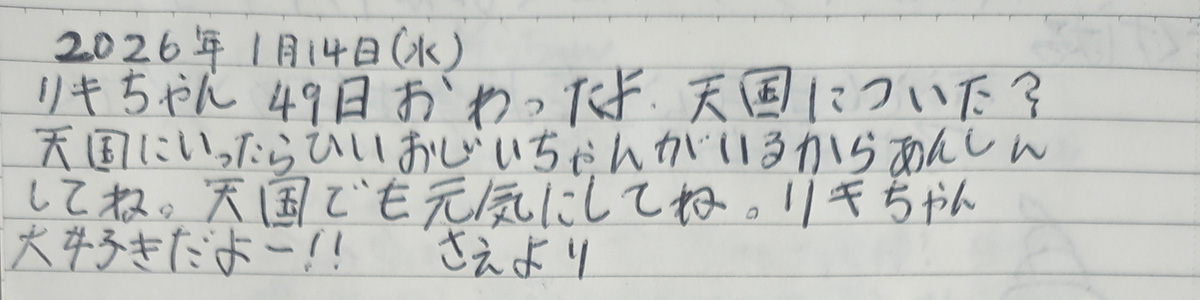 2026年1月14日(水)
リキちゃん 49日おわったよ. 天国についた?
天国にいったらひいおじいちゃんがいるからあんしん
してね。天国でも元気にしてね。リキちゃん
大好きだよー!! さえより